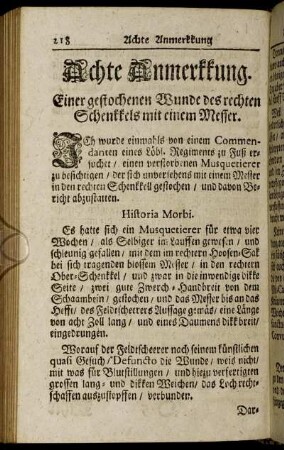 218 Achte Anmerkkung
Achte Anmerkkung.
Einer gestochenen Wunde des rechten
Schenkkels mit einem Messer.
ICh wurde einmahls von einem Commen-
danten eines Löbl. Regiments zu Fuß er-
suchet / einen verstorbenen Musquetierer
zu besichtigen / der sich unversehens mit einem Messer
in den rechten Schenkkell gestochen / und davon Be-
richt abzustatten.
Historia Morbi.
Es hatte sich ein Musquetierer für etwa vier
Wochen / als Selbiger im Lauffen gewesen / und
schleunig gefallen / mit dem im rechtern Hoosen-Sak
bei sich tragenden blossem Messer / in den rechten
Ober-Schenkkel / und zwar in die inwendige dikke
Seite / zwei gute Zwerch-Handbreit von dem
Schaambein / gestochen / und das Messer bis an das
Hefft / des Feldtscherers Aussage gemäs / eine Länge
von acht Zoll lang / und eines Daumens dikkbreit /
eingedrungen.
Worauf der Feldtscheerer nach seinem künstlichen
quasi Gesuch / Defuncto die Wunde / weis nicht /
mit was für Blutstillungen / und hiezu verfertigten
grossen lang- und dikken Weichen / das Loch recht-
schaffen auszustopffen / verbunden.
Dar-